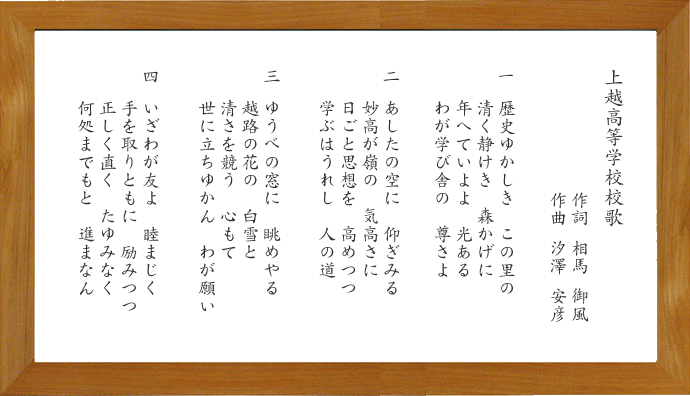 上越高等学校校歌
作詞 相馬 御風
作曲 汐澤 安彦
一 歴史ゆかしき この里の
清く静けき 森かげに
年へていよよ 光ある
わが学び舎の 尊さよ
二 あしたの空に 仰ぎみる
妙高が嶺の 気高さに
日ごと思想を 高めつつ
学ぶはうれし 人の道
三 ゆうべの窓に 眺めやる
越路の花の 白雪と
清さを競う 心もて
世に立ちゆかん わが願い
四 いざわが友よ 睦まじく
手を取りともに 励みつつ
正しく直く たゆみなく
何処までもと 進まなん